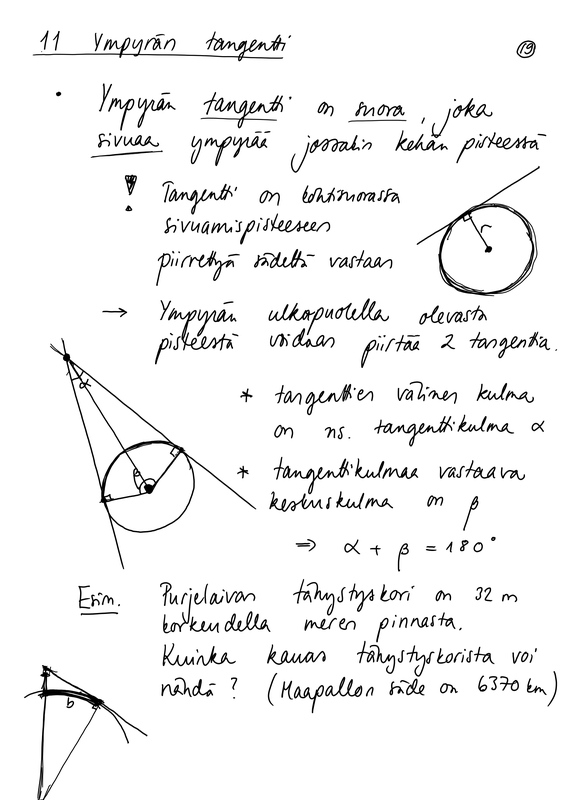 11 Ympyrän tangentti
19
• Ympyrän tangentti on suora, joka
sivuaa ympyrää jossakin kehän pisteestä
! Tangentti on kohtisuorassa
sivuamispisteeseen
piirrettyä sädettä vastaan
r
→ Ympyrän ulkopuolella olevasta
pisteestä voidaan piirtää 2 tangenttia.
α
* tangenttien välinen kulma
on ns. tangenttikulma α
* tangenttikulmaa vastaava
keskuskulma on β
β
⇒ α + β = 180°
Esim. Purjelaivan tähystyskori on 32 m
korkeudella meren pinnasta.
Kuinka kauas tähystyskorista voi
nähdä? (Maapallon säde on 6370 km)
b